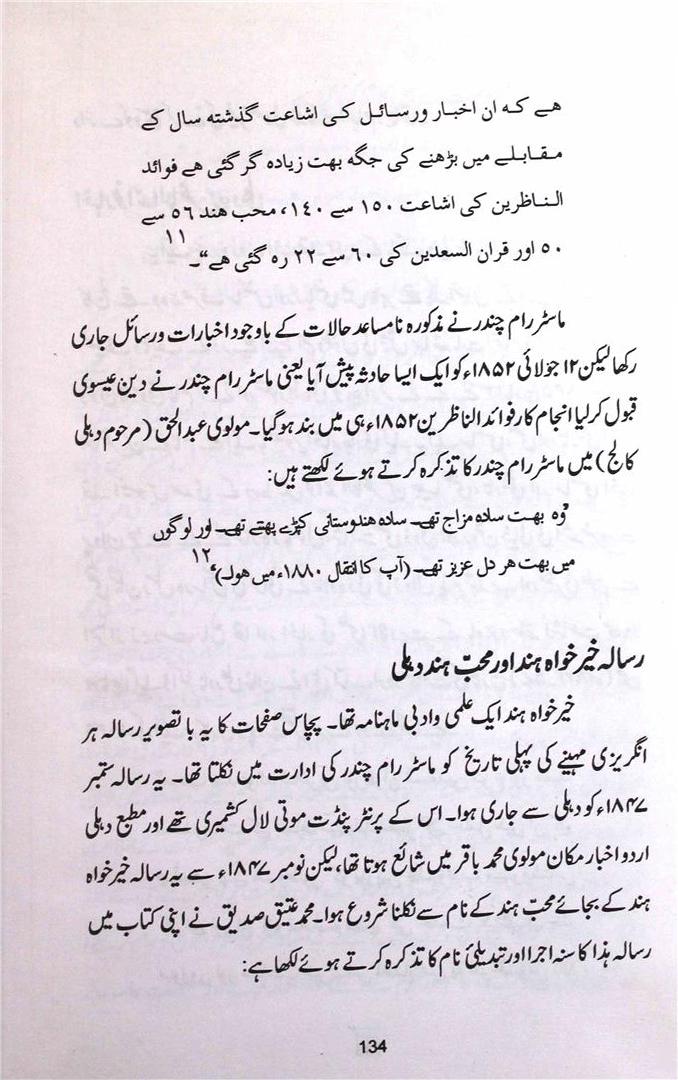 ہے کہ ان اخبار ورسائل کی اشاعت گذشتہ سال کے
مقابلے میں بڑھنے کی جگہ بہت زیادہ گر گئی ہے فوائد
الناظرین کی اشاعت ۱۵۰ سے ۱۴۰، محب ہند ۵۶ سے
۵۰ اور قران السعدین کی ۶۰ سے ۲۲ رہ گئی ہے“۔ ۱۱
ماسٹر رام چندر نے مذکورہ نامساعد حالات کے باوجود اخبارات ورسائل جاری
رکھا لیکن ۱۲ جولائی ۱۸۵۲ء کو ایک ایسا حادثہ پیش آیا یعنی ماسٹر رام چندر نے دین عیسوی
قبول کرلیا انجام کار فوائد الناظرین ۱۸۵۲ء ہی میں بند ہوگیا۔ مولوی عبدالحق (مرحوم دہلی
کالج) میں ماسٹر رام چندر کا تذکرہ کرتے ہوئے لکھتے ہیں:
’وہ بہت سادہ مزاج تھے۔ سادہ ہندوستانی کپڑے پہنتے تھے۔ اور لوگوں
میں بہت ہر دل عزیز تھے۔ (آپ کا انتقال ۱۸۸۰ء میں ہوا۔)‘ ۱۲
رسالہ خیر خواہ ہند اور محبّ ہند دہلی
خیر خواہ ہند ایک علمی وادبی ماہنامہ تھا۔ پچاس صفحات کا یہ با تصویر رسالہ ہر
انگریزی مہینے کی پہلی تاریخ کو ماسٹر رام چندر کی ادارت میں نکلتا تھا۔ یہ رسالہ ستمبر
۱۸۴۷ء کو دہلی سے جاری ہوا۔ اس کے پرنٹر پنڈت موتی لال کشمیری تھے اور مطبع دہلی
اردو اخبار مکان مولوی محمد باقر میں شائع ہوتا تھا، لیکن نومبر ۱۸۴۷ء سے یہ رسالہ خیر خواہ
ہند کے بجائے محبّ ہند کے نام سے نکلنا شروع ہوا۔ محمد عتیق صدیق نے اپنی کتاب میں
رسالہ ہذا کا سنہ اجرا اور تبدیلیٔ نام کا تذکرہ کرتے ہوئے لکھا ہے:
134